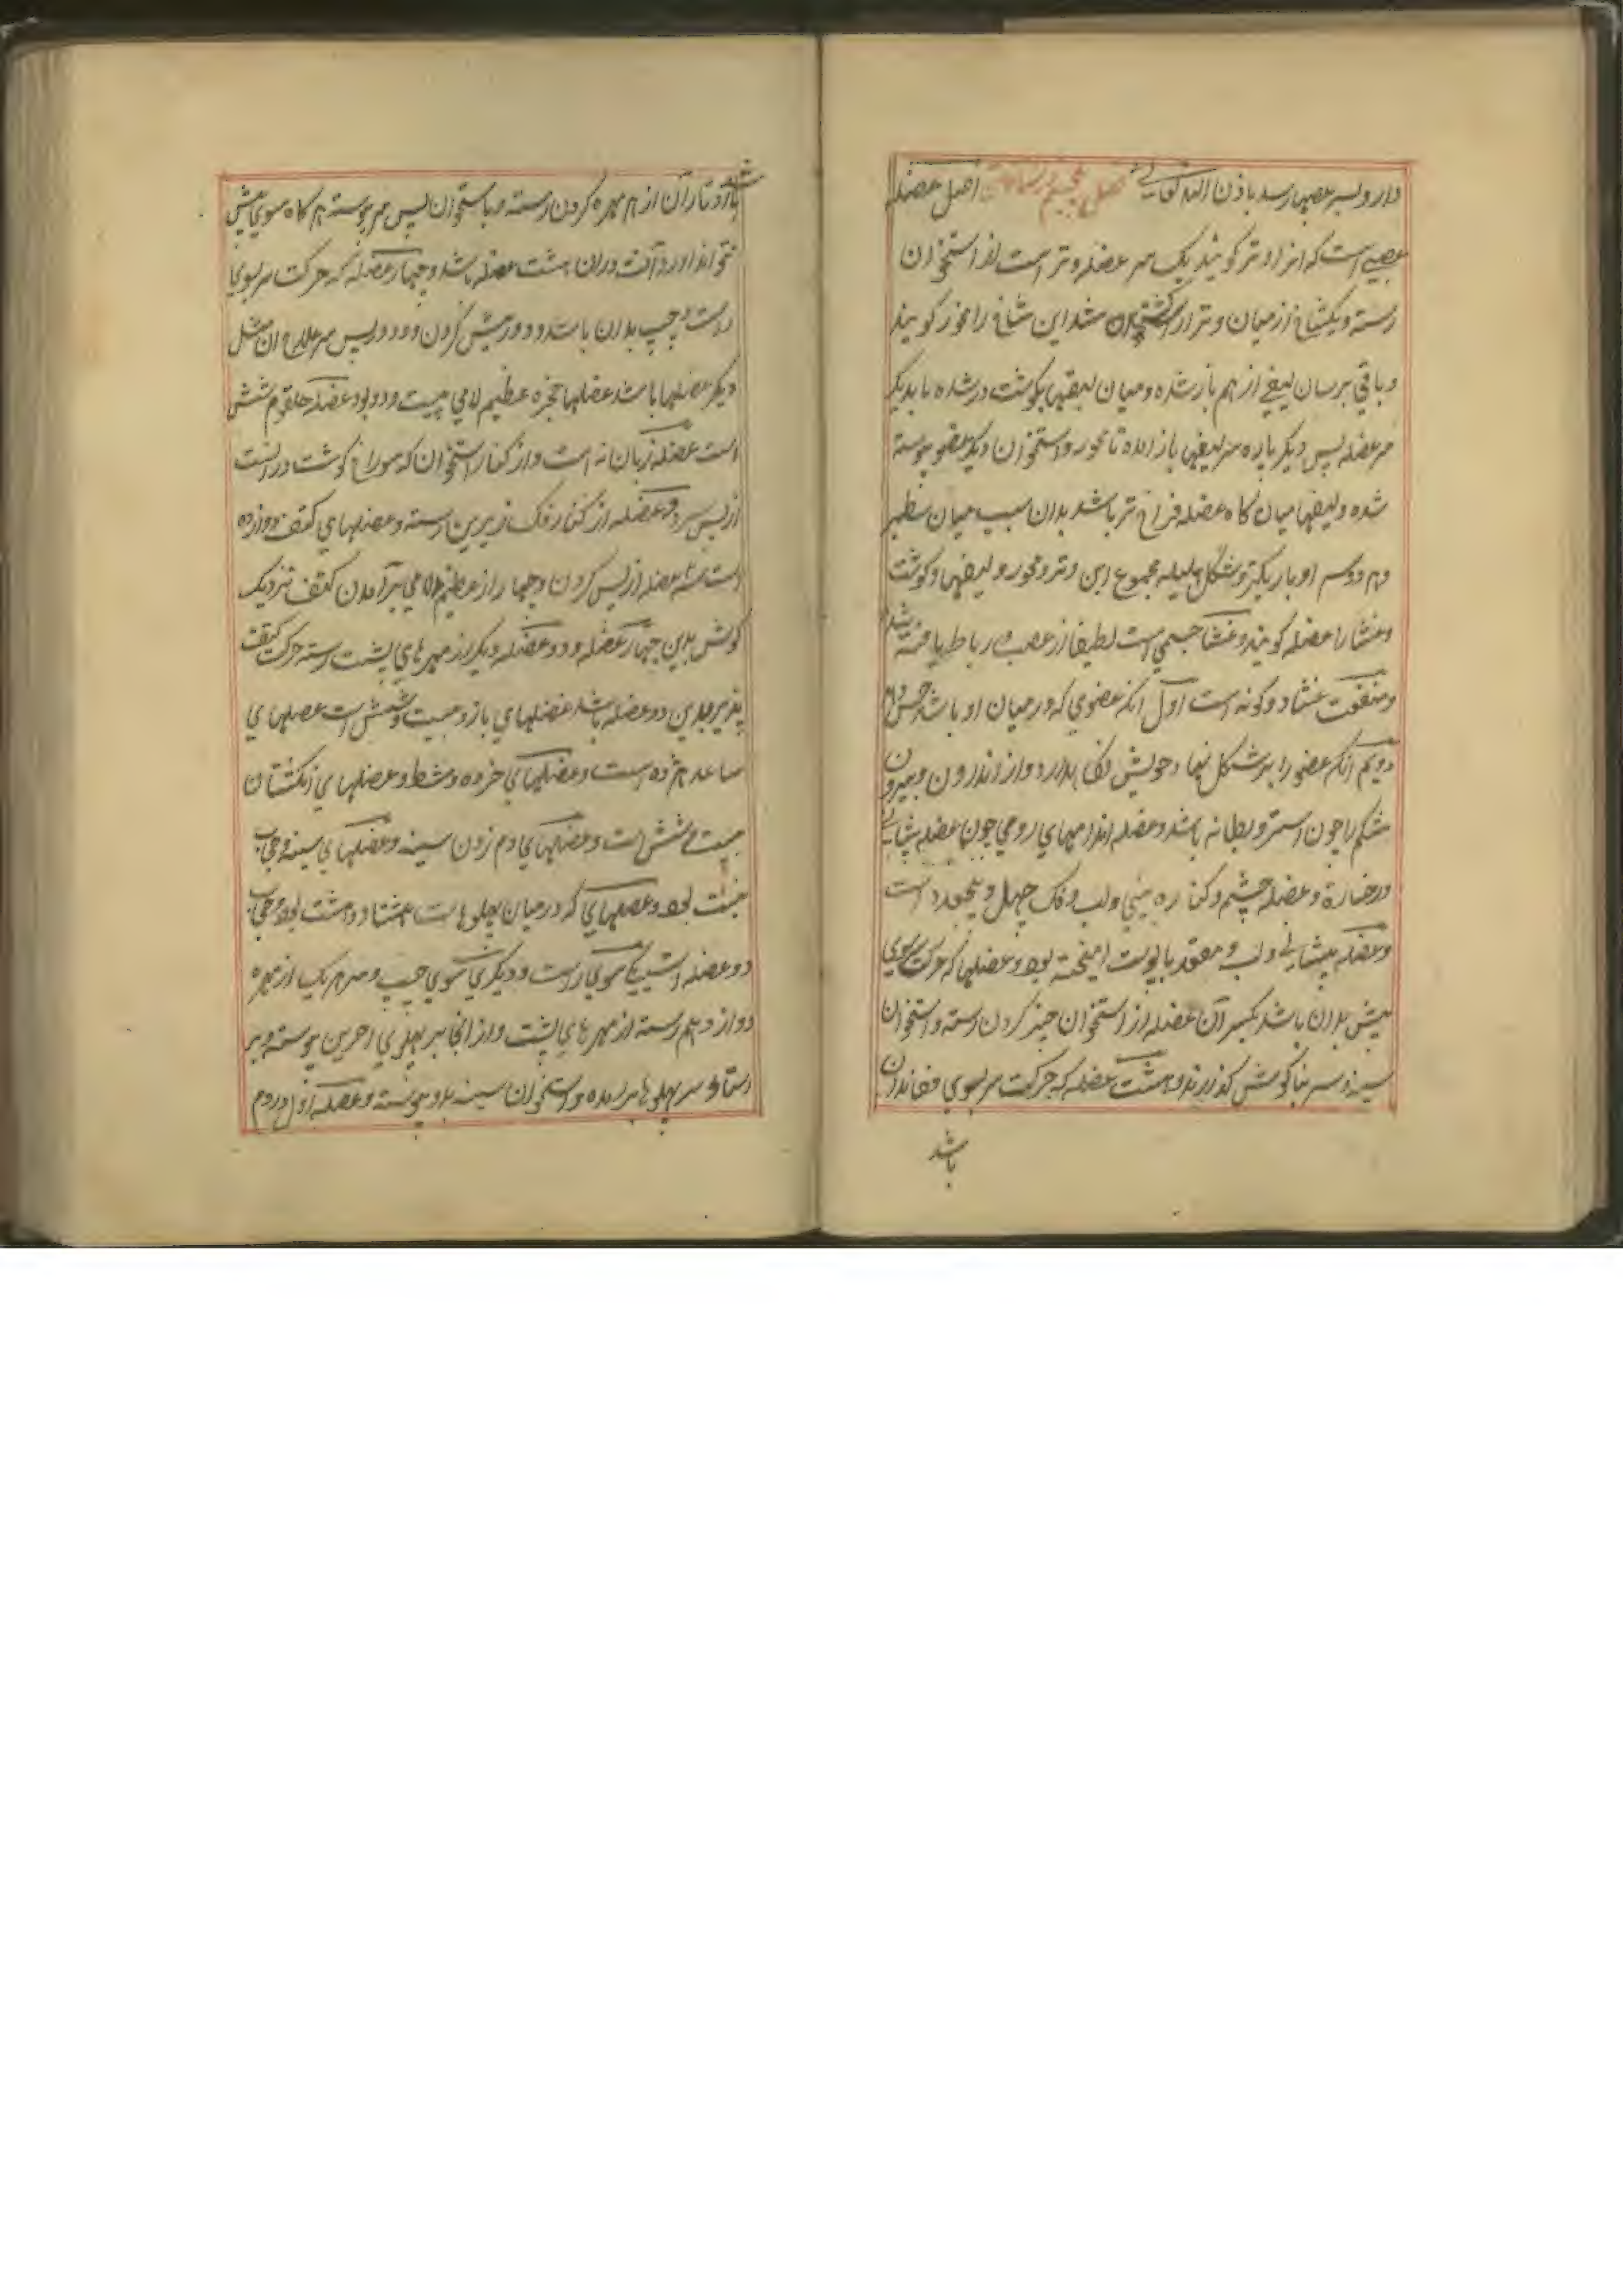 دارو بسر عصبها رسد باذن الله تعالی فصل پنجم اصل عضله
عصبی است که انرا وتر گویند یک سر عضله وتر است از استخوان
رسته و یکشاخ از میان وتر شد این شاخ را محور گویند
و باقی برسان لیفی از هم باز شده و میان لیفها بگوشت در شده تا بدیگر
سر عضله پس دیگر باره سر لیفها باز امده تا محور و استخوان دیگر عضو پیوسته
شده و لیفها میان گاه عضله فراخ تر باشد بدان سبب میان سطبر
و هر دو سر او باریکتر و شکل هلیله مجموع این وتر و محور و لیفها و گوشت
و غشا را عضله گویند و غشا جسمی است لطیف از عصب و رباط بافته شده
و منفعت غشا دو گونه است اول انکه عضوی که در میان او باشد حس دهد
دویم انکه عضو را بر شکل نهاد خویش نگاه دارد و از اندرون و بیرون
شکم را چون استر و بطانه باشد و عضله اندامهای رومی چون عضله پیشانی
و رخساره و عضله چشم و کناره بینی و لب و فک چهل و پنج عدد است
و عضله پیشانی و لب و مقعد با پوست امیخته بود و عضلها که حرکت سر سوی
پیش بدان باشد یکسر آن عضله از استخوان چنبر گردن رسته و استخوان
سینه و سر بناگوش گذرند و هشت عضله که حرکت سر بسوی قفا بدان
باشد
باشد و تار آن از هر مهره گردن رسته و باستخوان پس سر پیوسته هر گاه سر سوی پیش
نتواند اورد آفت دران هشت عضله باشد و چهار عضله که حرکت سر بسوی
راست و چپ بدان باشد دو در پیش گردن و دو در پس سر علاج ان مثل
دیگر عضلها باشد عضلها حنجره عظیم لامی بیست و دو بود عضله حلقوم شش
است عضله زبان نه است و از کنار استخوان که سوراخ گوشت در است
از پس سر دو عضله از کنار فک زیرین رسته و عضلهای کتف دوازده
است سه عضله از پس گردن و چهار از عظیم لامی برآمدن کتف نزدیک
گوش بدین چهار عضله و دو عضله دیگر از مهرهای پشت رسته حرکت کتف
پذیر بدین دو عضله باشد عضلهای بازو بیست و شش است عضلهای
ساعد هژده است و عضلهای خرده و مشط و عضلهای انگشتان
بیست و شش است و عضلهای دم زدن سینه و عضلهای سینه و حجاب
بود و عضلهای که در میان پهلوهاست هشتاد و هشت بود و حجاب
دو عضله است یکی سوی راست و دیگری سوی چپ و سر هر یک از مهره
دوازدهم رسته از مهرهای پشت و از انجا بر پهلوی اخرین پیوسته و بر
سر پهلوها برامده و استخوان سینه بدو پیوسته و عضله اول و دوم